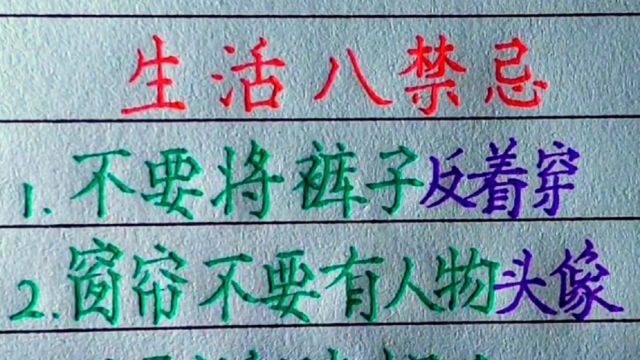 生活八禁忌
1.不要将裤子反着穿
2.窗帘不要有人物头像